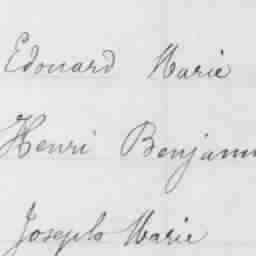 Edouard Marie
Henri Benjami
Joseph Marie